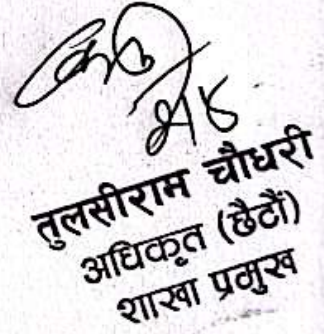 तुलसीराम चौधरी
अधिकृत (छैटौं)
शाखा प्रमुख